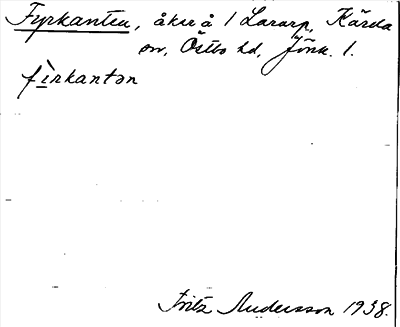 Fyrkanten, åker å 1 Lararp, Kärda
sn, Östbo hd, Jönk. l.
fìrkantən
Fritz Andersson 1938.